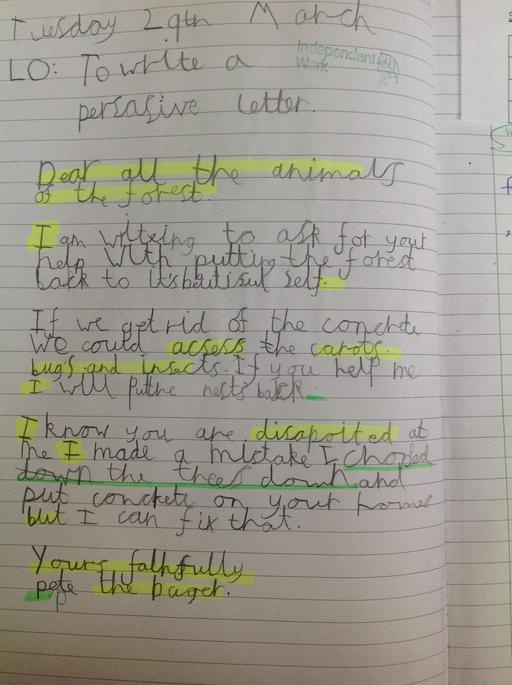 Tuesday 29th March
LO: To write a
Independent
Work
persasive letter.
Dear all the animals
of the forest.
I am writeing to ask for your
help with putting the forest
back to it's beutiful self.
If we get rid of the concrete
we could acsess the carots.
bugs and insects. If you help me
I will putthe nests back.
I know you are disapoited at
me I made a mistake I choped
down the thees down and
put concrete on your homes
but I can fix that.
Yours faithfully
pete the bager.